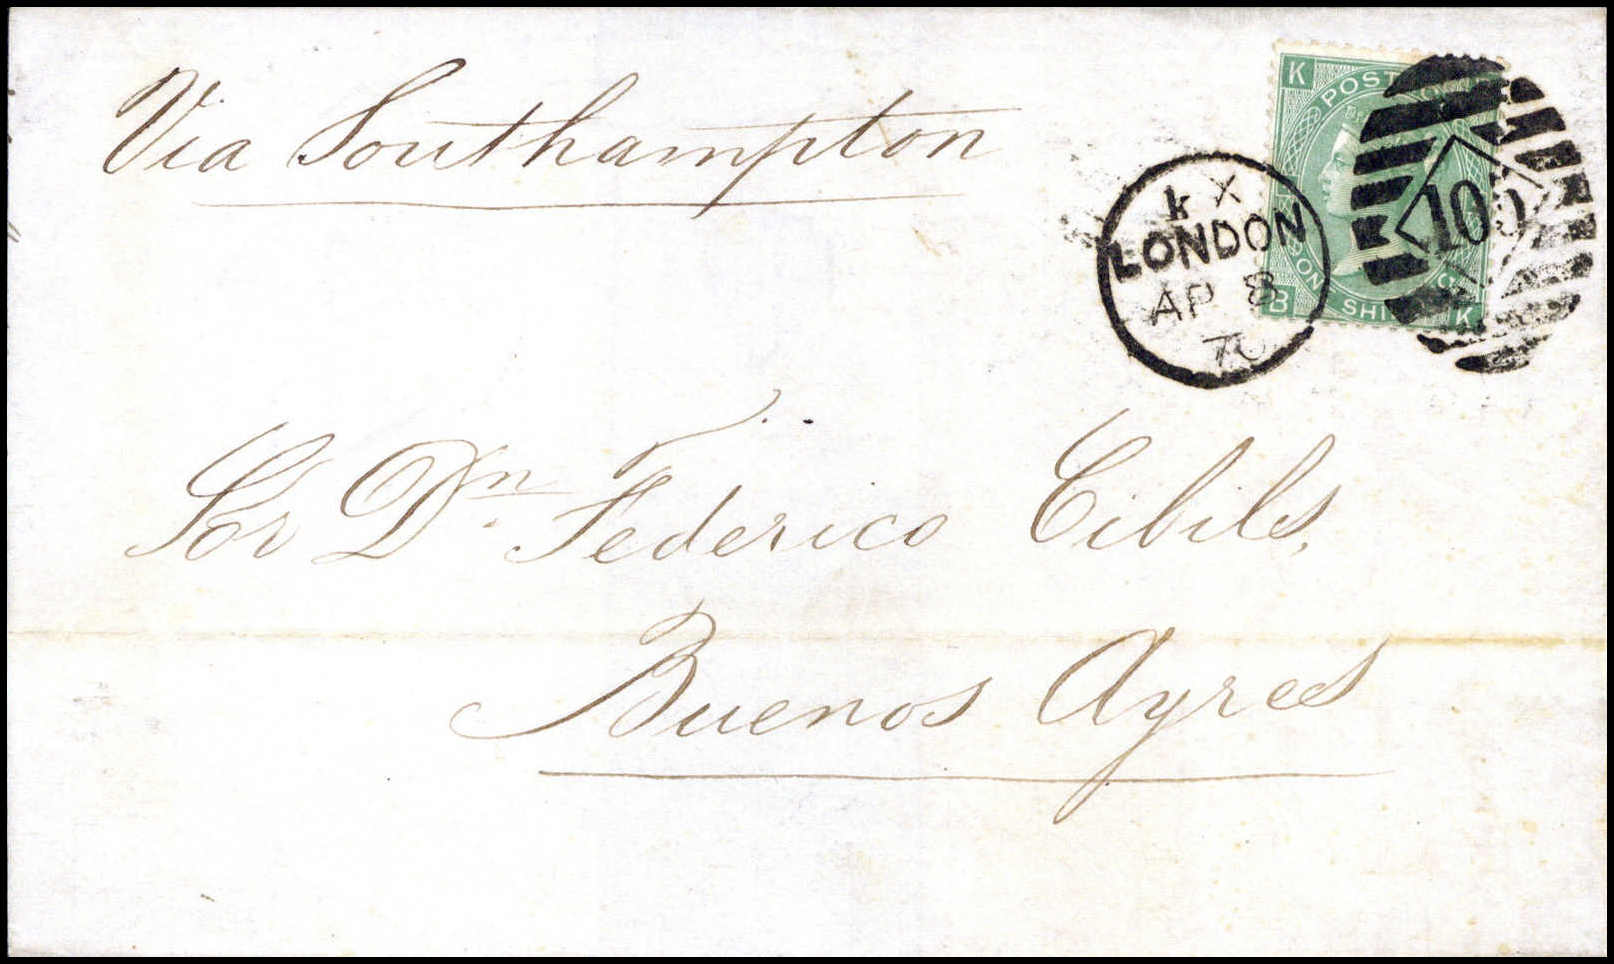 Via Southampton
K
POST
ON SHI
B K
k X
LONDON
AP 8
70
100
Sor Dn. Federico Cibils,
Buenos Ayres